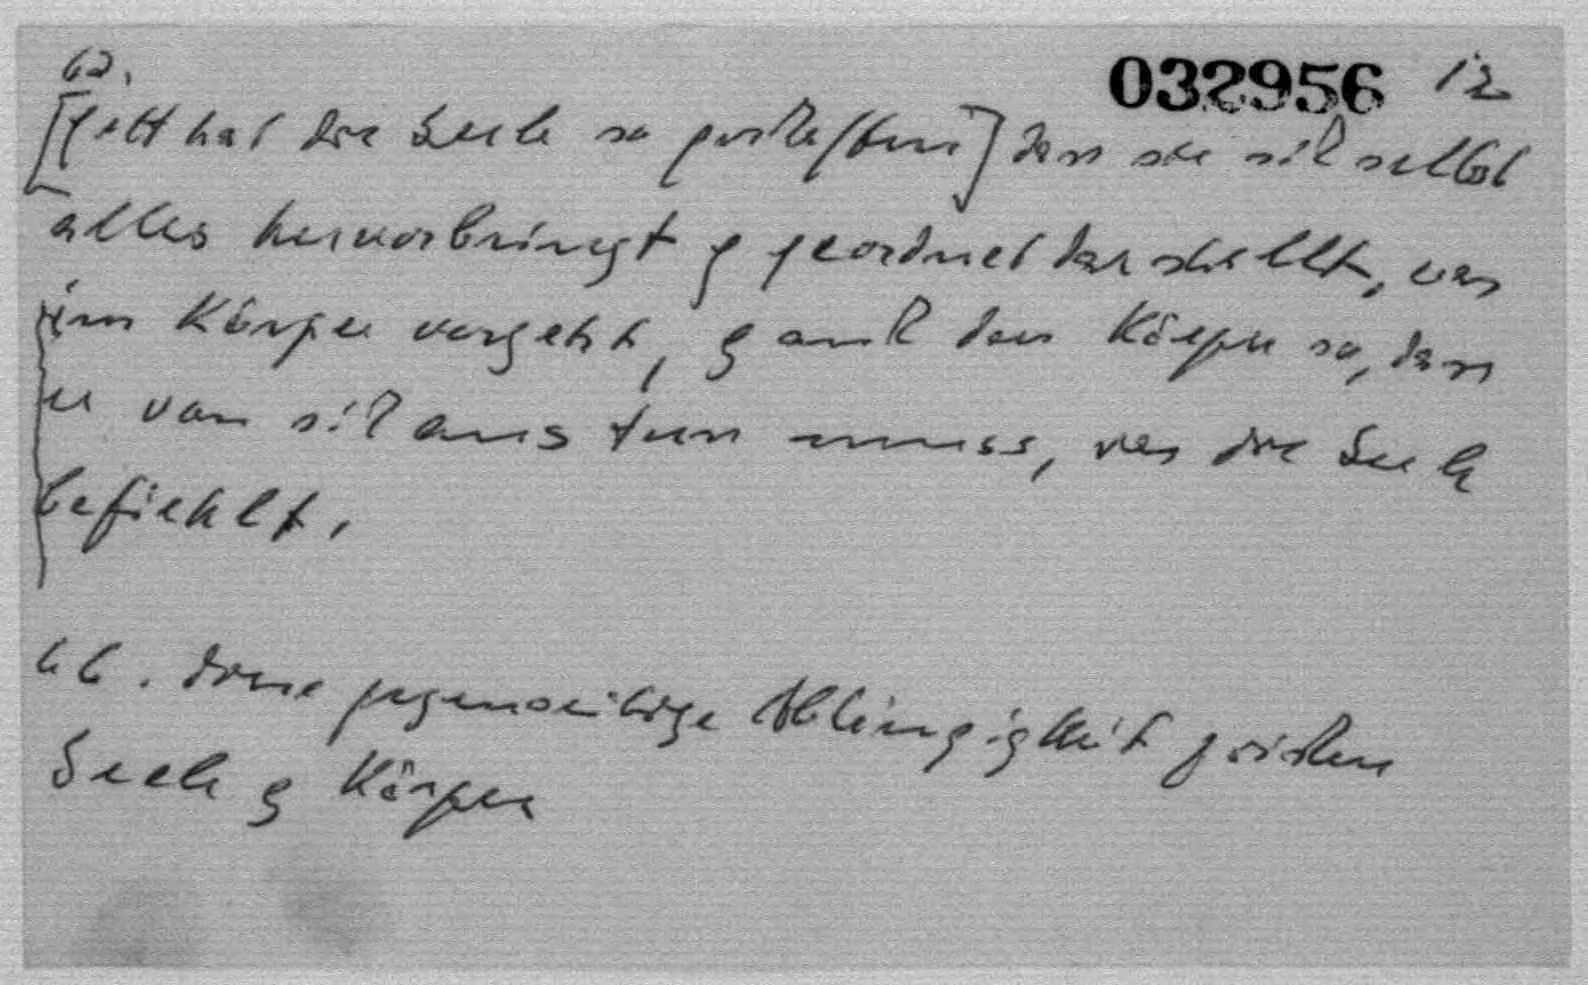 62.
032956 12
[Gott hat die Seele so geschaffen] dass sie sich selbst
alles hervorbringt & geordnet darstellt, was
im Körper vorgeht, & auch den Körper so, dass
er von sich aus tun muss, was die Seele
befiehlt.
66. Diese gegenseitige Abhängigkeit zwischen
Seele & Körper